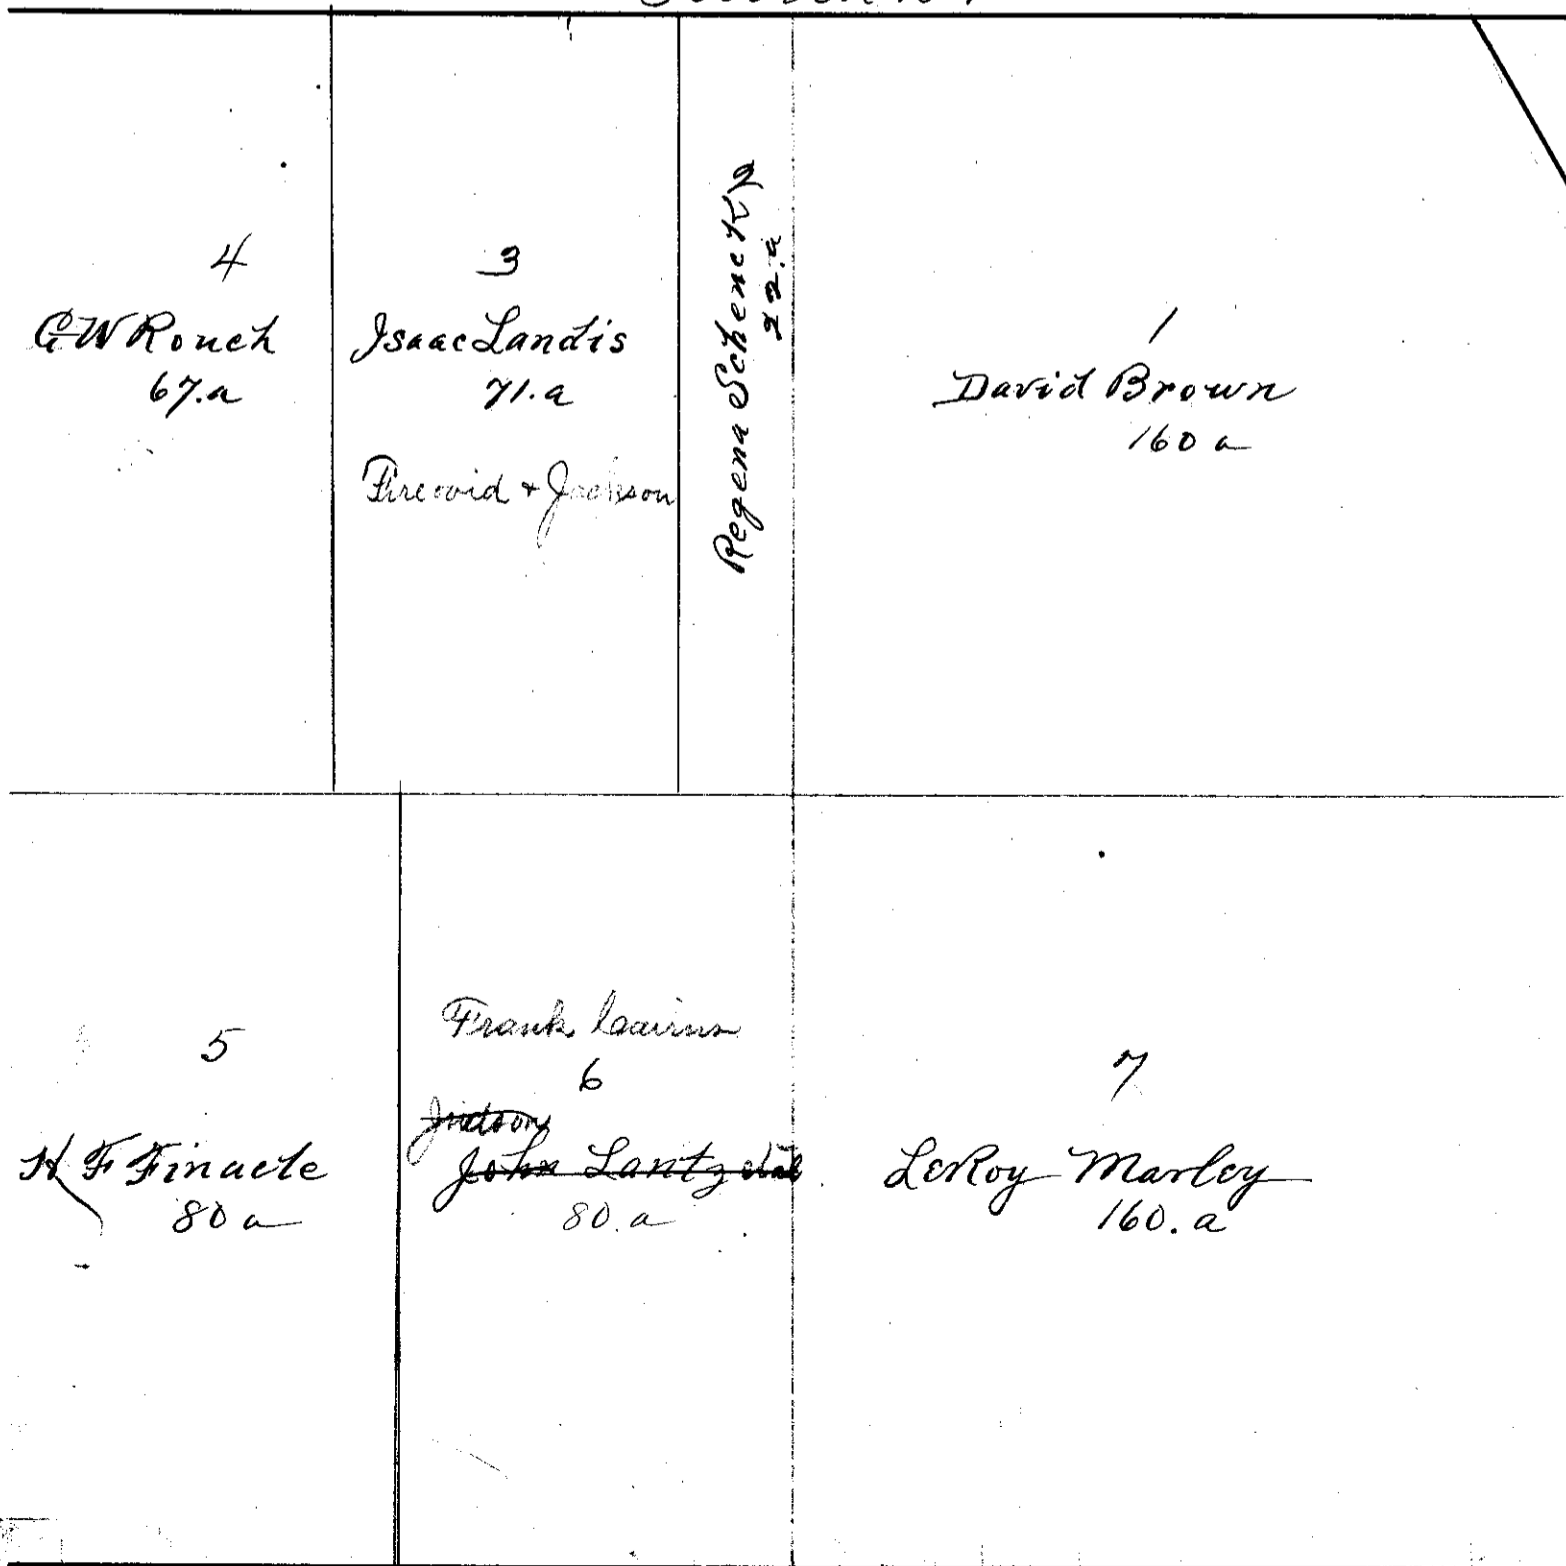 4
G W Rouch
67.a
3
Isaac Landis
71.a
Firovid + Jackson
Regena Schenck 2
22.a
1
David Brown
160 a
5
H F Finacle
80 a
Frank
6
Judson
John Lantz etal
80.a
7
LeRoy Marley
160. a